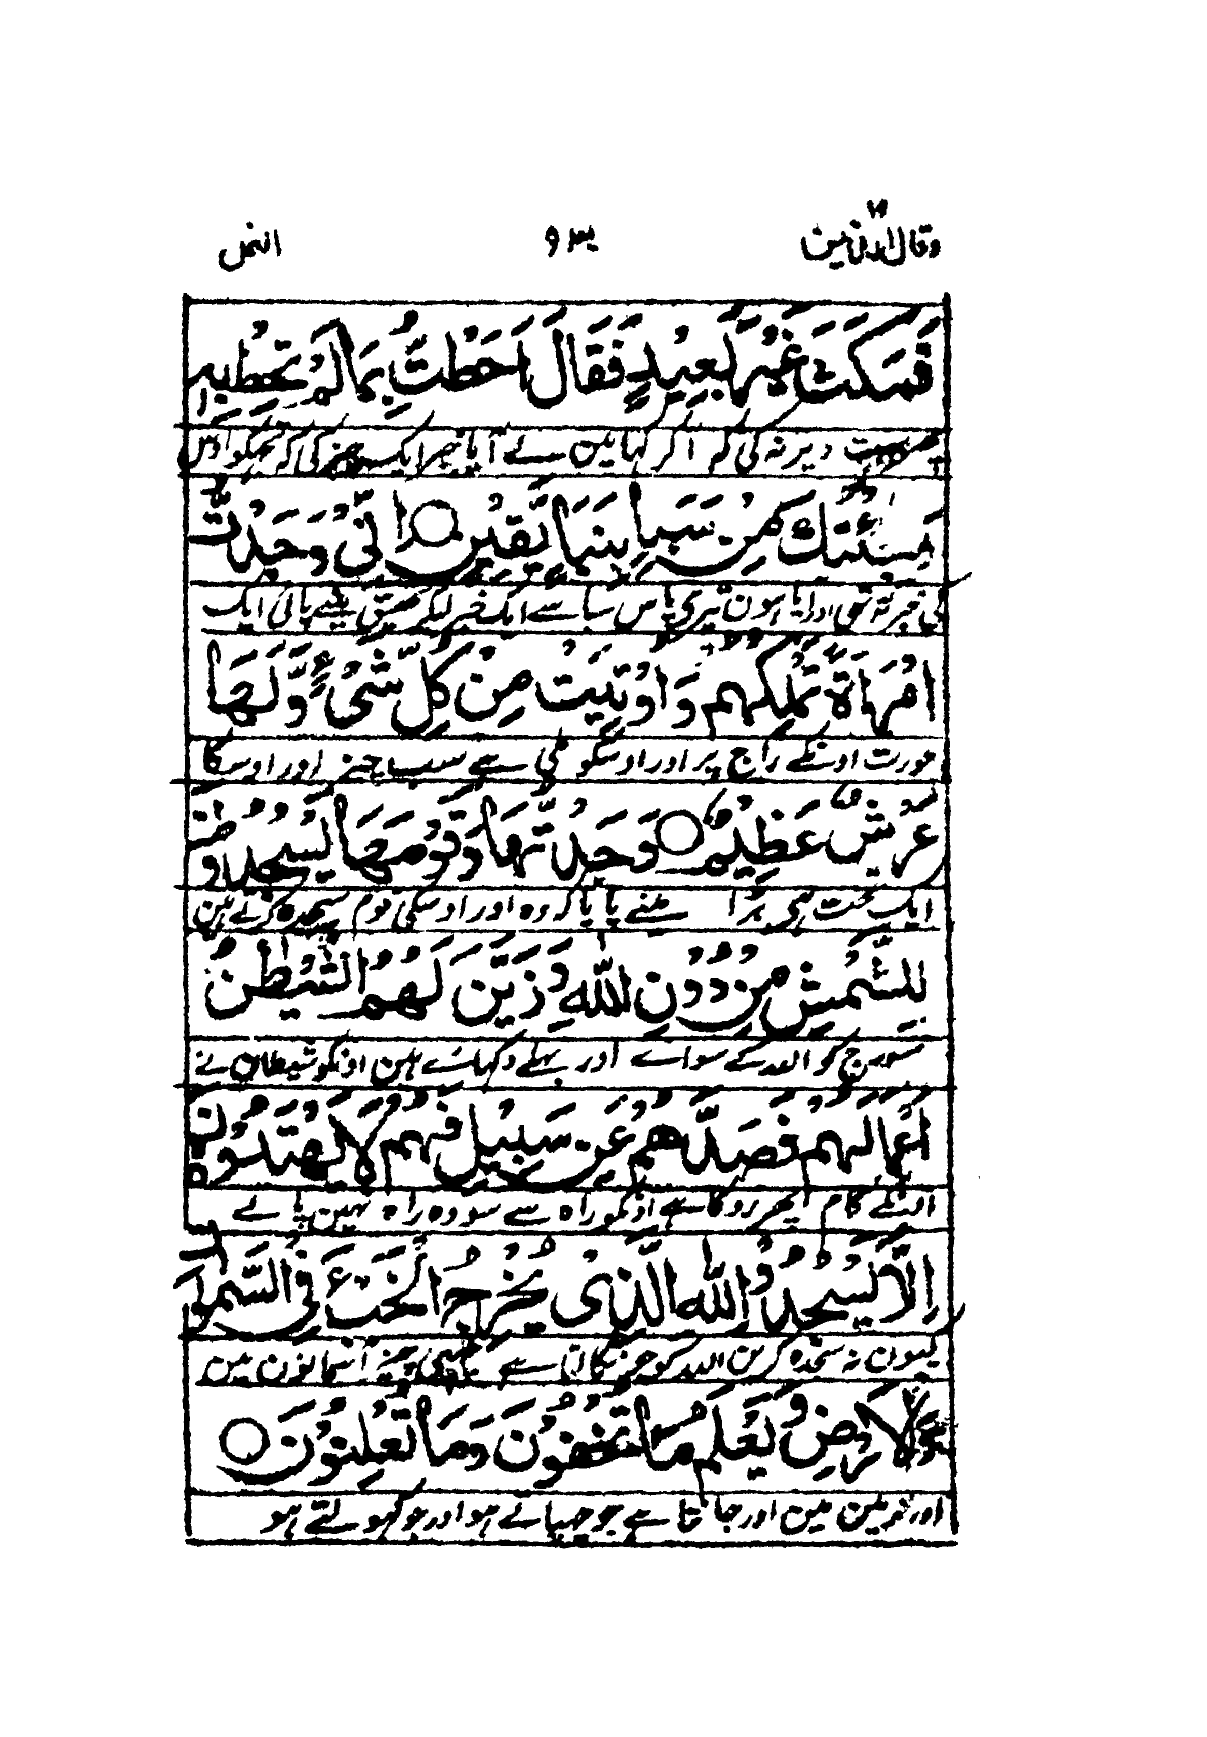 وقال الذين ١٩ النمل
فَمَكَثَ غَيْرَ بَعِيْدٍ فَقَالَ اَحَطْتُّ بِمَا لَمْ تُحِطْ بِهٖ
دیر نہ کی کہ آکر کہا مین لے آیا خبر ایک چیز کی کہ تجکو اوس
وَجِئْتُكَ مِنْ سَبَاٍ بِنَبَاٍ يَّقِيْنٍ ○ اِنِّىْ وَجَدْتُّ
کی خبر نہ تھی اور آیا ہون تیرے پاس سبا سے ایک خبر لیکر تحقیق مینے پائی ایک
امْرَاَةً تَمْلِكُهُمْ وَاُوْتِيَتْ مِنْ كُلِّ شَىْءٍ وَّلَهَا
عورت اونکے راج پر اور اوسکو ملی ہے سب چیز اور اوسکا
عَرْشٌ عَظِيْمٌ ○ وَجَدْتُّهَا وَقَوْمَهَا يَسْجُدُوْنَ
ایک تخت ہی بڑا مینے پایا کہ وہ اور اوسکی قوم سجدہ کرتے ہین
لِلشَّمْسِ مِنْ دُوْنِ اللّٰهِ وَزَيَّنَ لَهُمُ الشَّيْطٰنُ
سورج کو اللہ کے سواے اور بھلے دکھائے ہین اونکو شیطان نے
اَعْمَالَهُمْ فَصَدَّهُمْ عَنِ السَّبِيْلِ فَهُمْ لَا يَهْتَدُوْنَ
اونکے کام پھر روکا ہے اونکو راہ سے سو وہ راہ نہین پاتے
اَلَّا يَسْجُدُوْا لِلّٰهِ الَّذِىْ يُخْرِجُ الْخَبْءَ فِى السَّمٰوٰتِ
کیون نہ سجدہ کرین اللہ کو جو نکالتا ہے چھپی چیز آسمانون مین
وَالْاَرْضِ وَيَعْلَمُ مَا تُخْفُوْنَ وَمَا تُعْلِنُوْنَ ○
اور زمین مین اور جانتا ہے جو چھپاتے ہو اور جو کھولتے ہو